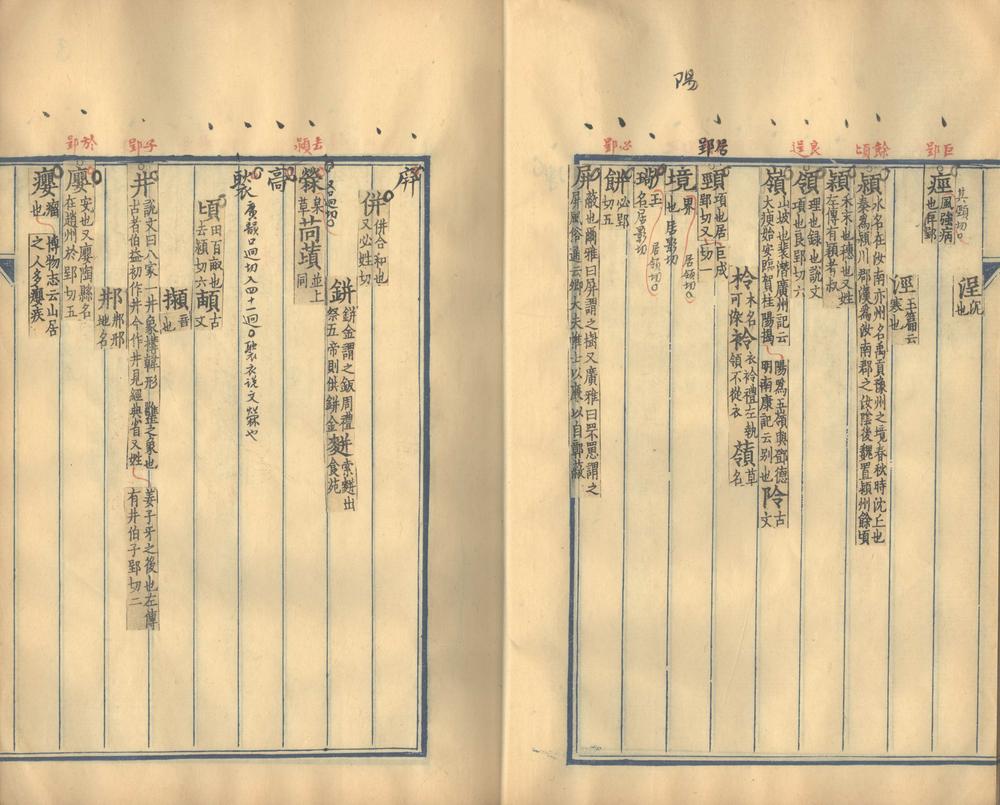 陽
巨郢
餘頃
良逞
居郢
必郢
去潁
子郢
於郢
涅沈也
痙風強病也巨郢
其頸切
涇玉篇云寒也
潁水名在汝南亦州名禹貢豫州之境春秋時沈丘也秦為潁川郡漢為汝南郡之汝陰後魏置潁州餘頃
穎禾末也穗也又姓左傳有穎考叔
領理也錄也說文項也良郢切六
嶺山坡也裴潛廣州記云大庾始安臨賀桂陽揭陽為五嶺與鄧德明南康記云別也阾古文
柃木名可染衿衣衿禮左執領不從衣嶺草名
頸項也居郢切又巨成切一
境界也居影切
居領切
璥玉名居影切
居領切
餅必郢切五
屏蔽也爾雅曰屏謂之樹又廣雅曰罘罳謂之屏風俗通云卿大夫帷士以簾以自鄣蔽
屏
併併合和也又必姓切
鉼鉼金謂之鈑周禮祭五帝則供鉼金麷索麷出食苑
檾枲草苘䔛並上同
口迥切
高
褧廣韻口迥切入四十一迥褧衣說文檾也
頃田百畝也去潁切六𩒛古文
井說文曰八家一井象構韓形𦉥之象也古者伯益初作井今作井見經典省又姓姜子牙之後也左傳有井伯子郢切二
邢邢地名
廮安也又廮陶縣名在趙州於郢切五
癭瘤也博物志云山居之人多癭疾